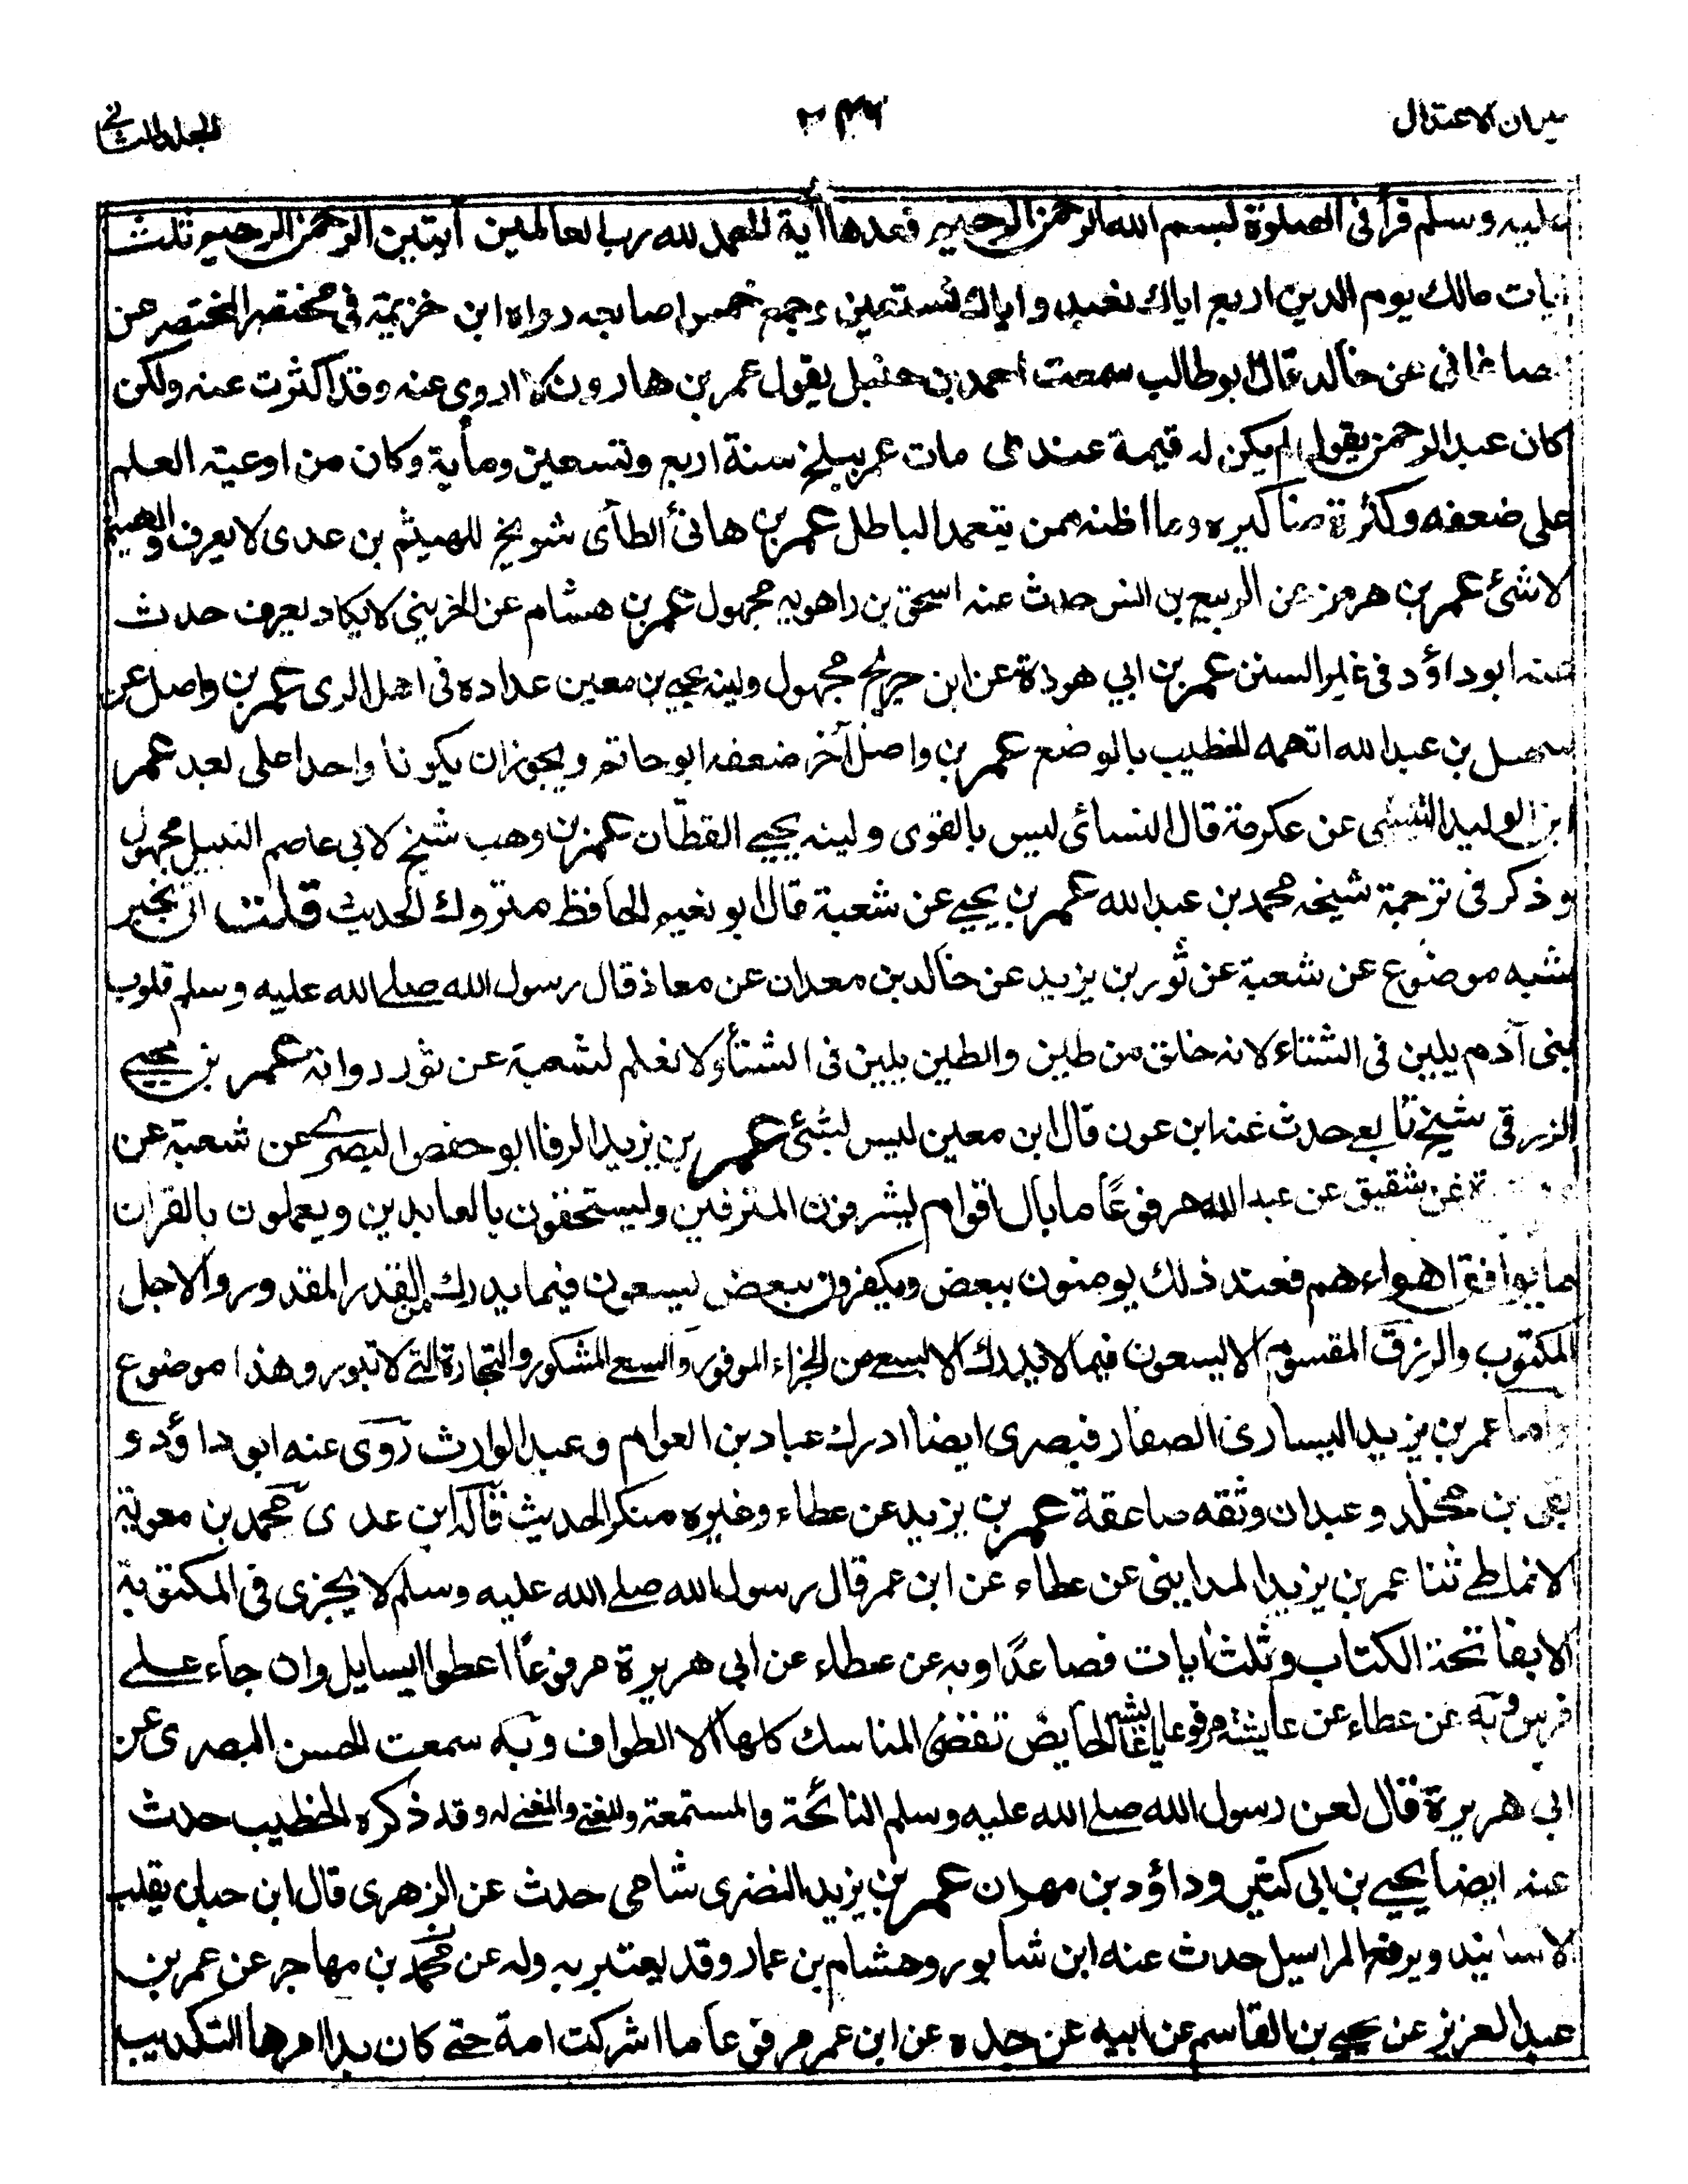 ميزان الاعتدال
٢٣٦
المجلد الثاني
عليه وسلم قرأ في الصلوة بسم الله الرحمن الرحيم فعدها أية الحمد لله رب العالمين أيتين الرحمن الرحيم ثلث
ايات مالك يوم الدين اربع اياك نعبد واياك نستعين وجمع خمس اصابعه رواه ابن خزيمة في مختصر المختصر عن
الصاغاني عن خالد قال ابو طالب سمعت احمد بن حنبل يقول عمر بن هارون لا اروى عنه وقد اكثرت عنه ولكن
كان عبد الرحمن يقول لم يكن له قيمة عندى مات عمر ببلخ سنة اربع وتسعين ومأية وكان من اوعية العلم
على ضعفه وكثرة مناكيره وما اظنه ممن يتعمد الباطل عمر بن هانئ الطآى شويخ للهيثم بن عدى لا يعرف والهيثم
لا شئ عمر بن هرمز عن الربيع بن انس حدث عنه اسحق بن راهويه مجهول عمر بن هشام عن الخريبي لا يكاد يعرف حدث
عنه ابو داؤد في غير السنن عمر بن ابي هوذة عن ابن جريج مجهول ولينه يحيى بن معين عداده في اهل الرى عمر بن واصل عن
سهل بن عبد الله اتهمه الخطيب بالوضع عمر بن واصل آخر ضعفه ابو حاتم ويجوز ان يكونا واحدا على بعد عمر
ابن الوليد الشنى عن عكرمة قال النسائى ليس بالقوى ولينه يحيى القطان عمر بن وهب شيخ لابي عاصم النبيل مجهول
وذكر في ترجمة شيخه محمد بن عبد الله عمر بن يحيى عن شعبة قال ابو نعيم الحافظ متروك الحديث قلت اتى بخبر
شبه موضوع عن شعبة عن ثور بن يزيد عن خالد بن معدان عن معاذ قال رسول الله صلى الله عليه وسلم قلوب
بنى آدم يلين في الشتاء لانه خلق من طين والطين يلين في الشتأ ولا نعلم لشعبة عن ثور رواية عمر بن يحيى
الزرقى شيخ تابعي حدث عنه ابن عون قال ابن معين ليس بشئ عمر بن يزيد الرفا ابو حفص البصرى عن شعبة عن
عن شقيق عن عبد الله مرفوعًا ما بال اقوام يشرفون المترفين ويستخفون بالعابدين ويعملون بالقران
ما يوافق اهواءهم فعند ذلك يومنون ببعض ويكفرون ببعض يسعون فيما يدرك من القدر المقدور والاجل
المكتوب والرزق المقسوم الا يسعون فيما لا يدرك الا بسعى من الجزاء الموفور والسعى المشكور والتجارة التى لا تبور وهذا موضوع
واما عمر بن يزيد السيارى الصفار فبصرى ايضا ادرك عباد بن العوام وعبد الوارث روى عنه ابو داؤد و
بقى بن مخلد وعبدان وثقه صاعقة عمر بن يزيد عن عطاء وغيره منكر الحديث قاله ابن عدى محمد بن معوية
الانماطى ثنا عمر بن يزيد المداينى عن عطاء عن ابن عمر قال رسول الله صلى الله عليه وسلم لا يجزى في المكتوبة
الا بفاتحة الكتاب وثلث ايات فصاعدًا وبه عن عطاء عن ابى هريرة مرفوعًا اعطوا السايل وان جاء على
فرس وبه عن عطاء عن عايشة مرفوعا الحايض تقضى المناسك كلها الا الطواف وبه سمعت الحسن البصرى عن
ابى هريرة قال لعن رسول الله صلى الله عليه وسلم النائحة والمستمعة والمغنى والمغنى له وقد ذكره الخطيب حدث
عنه ايضا يحيى بن ابى كثير وداؤد بن مهران عمر بن يزيد النضرى شامى حدث عن الزهرى قال ابن حبان يقلب
الاسانيد ويرفع المراسيل حدث عنه ابن شابور وهشام بن عمار وقد يعتبر به وله عن محمد بن مهاجر عن عمر بن
عبد العزيز عن يحيى بن القاسم عن ابيه عن جده عن ابن عمر مرفوعا ما اشركت امة حتى كان بدا امرها التكذيب